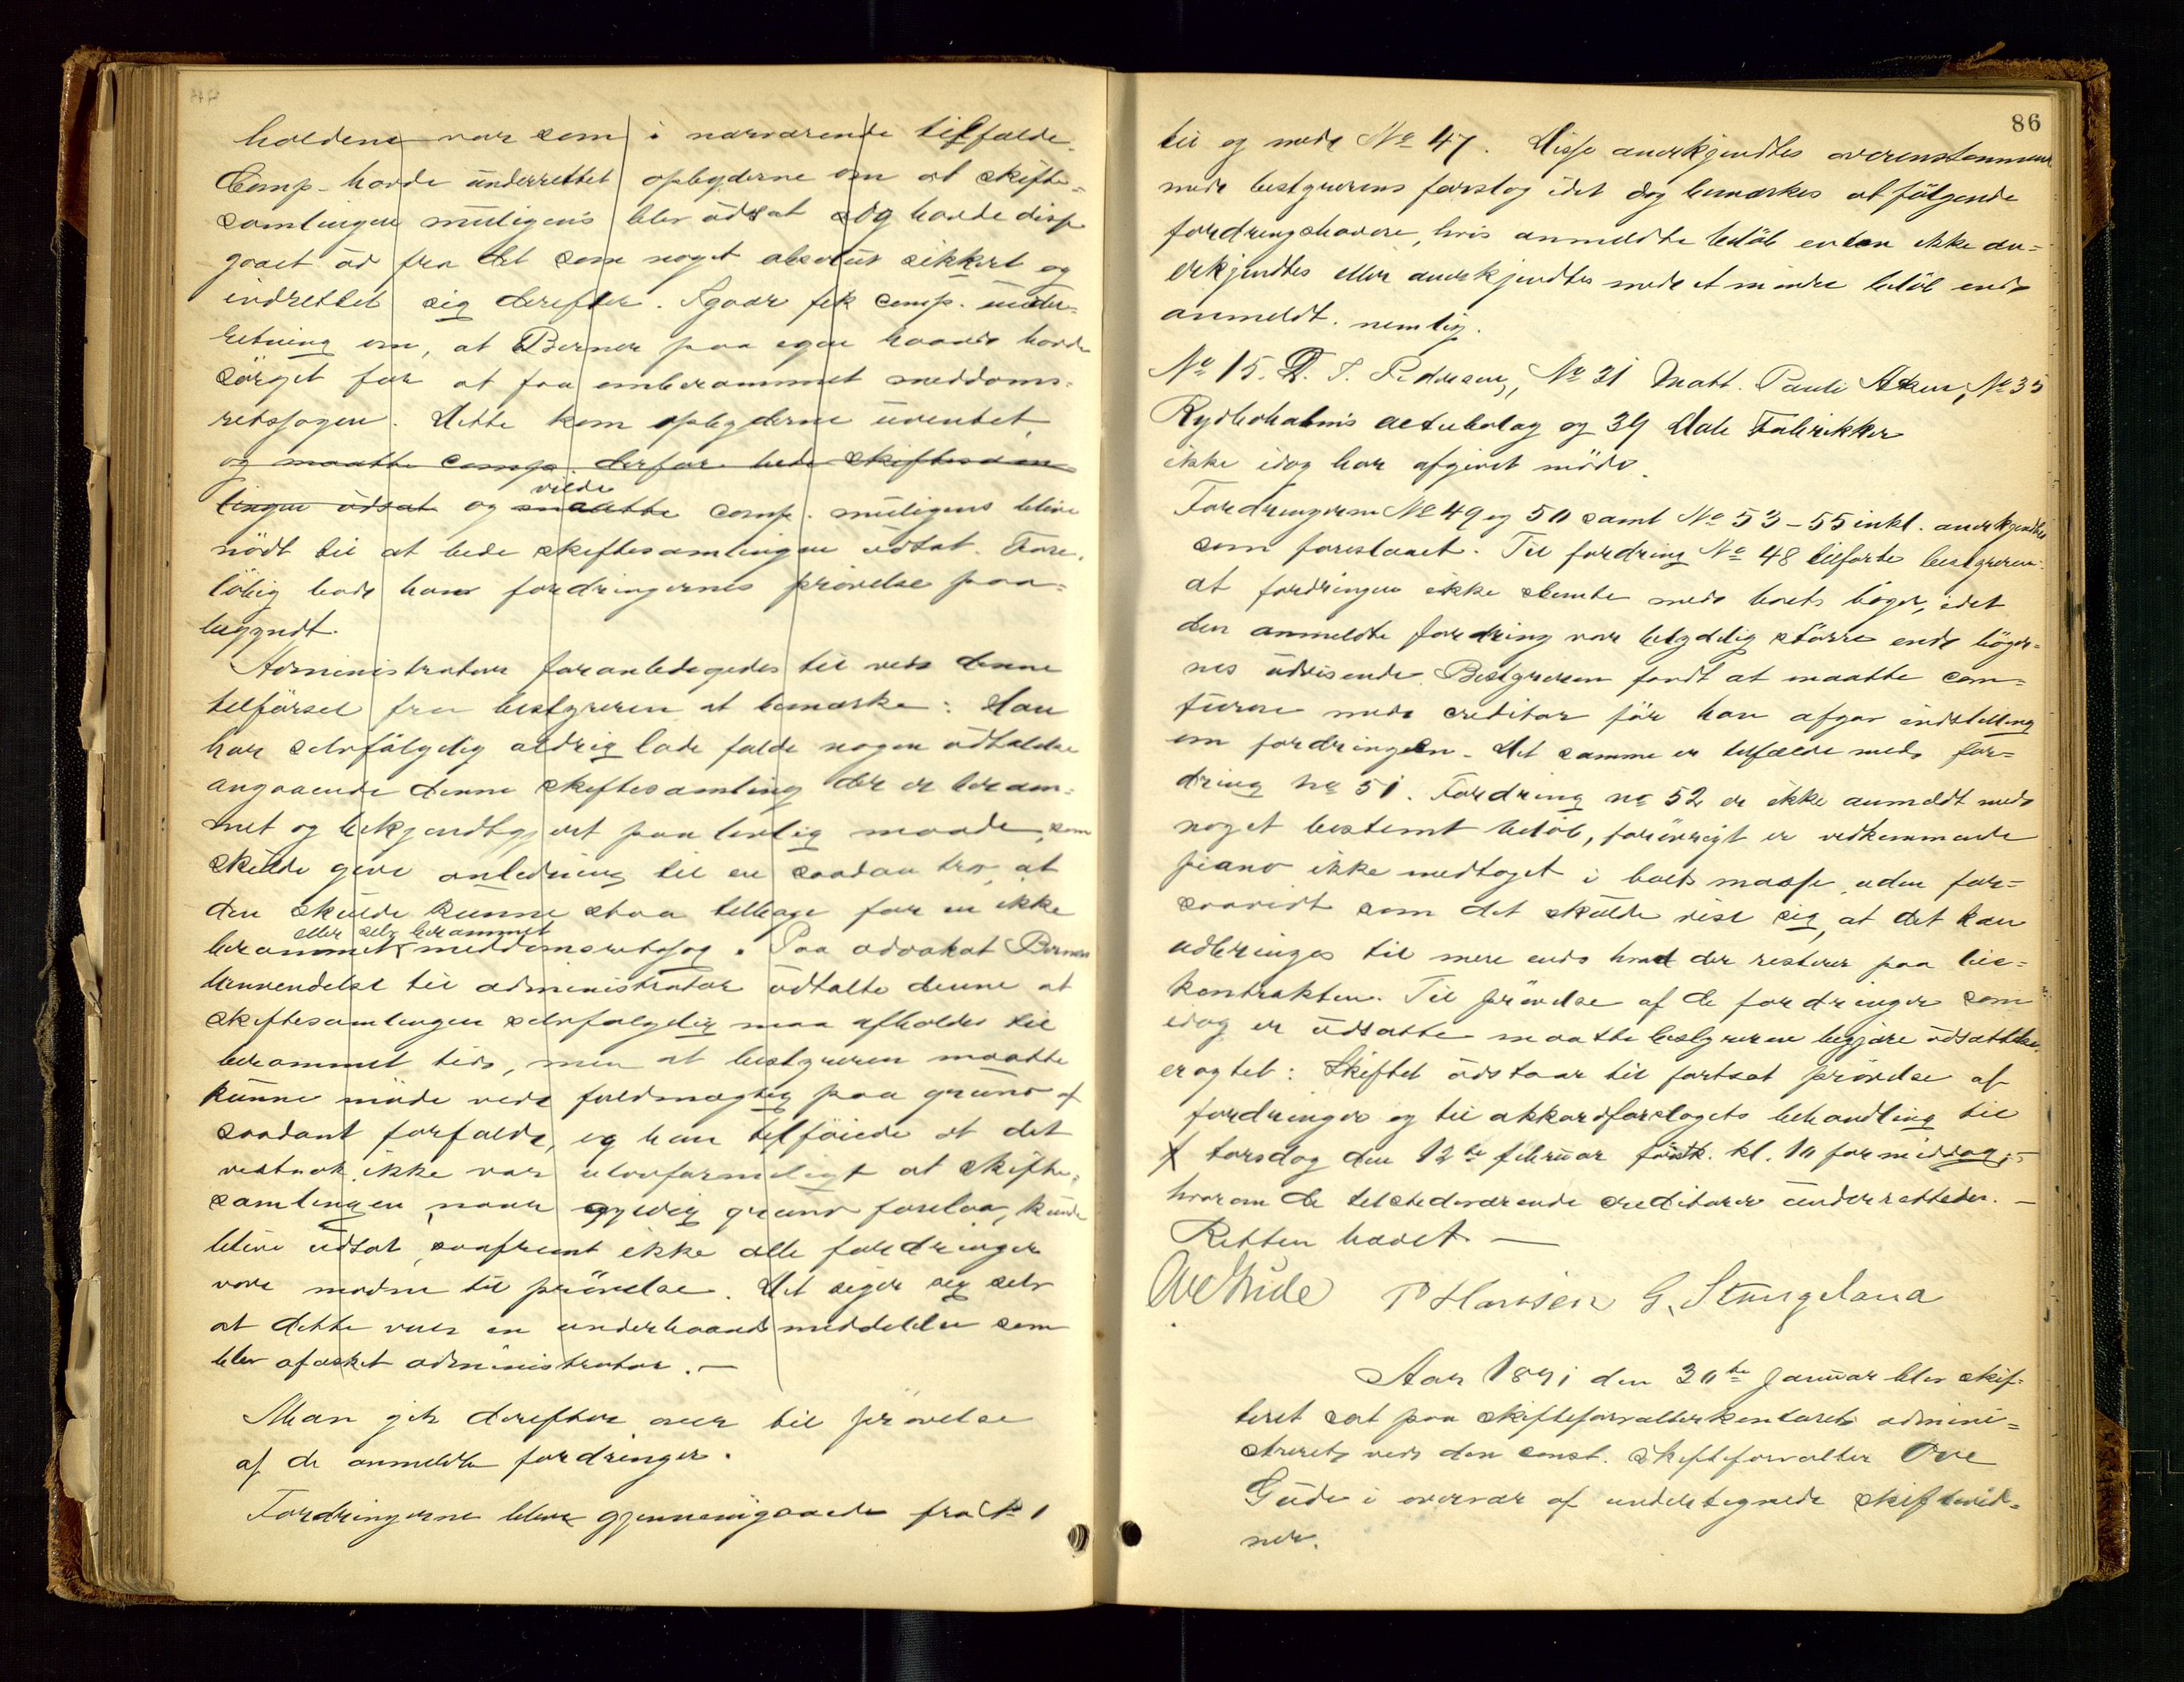 holdene var som i nærværende tilfælde.
Comp. havde underrettet opbyderne om at skifte-
samlingen muligens blev udsat og havde disse
gaaet ud fra det som noget absolut sikkert og
indrettet sig derefter. Igaar fik comp. under-
retning om, at Berner paa egen haand havde
sörget for at faa omberammet meddoms-
retssagen. Dette kom opbyderne uventet
og maatte comp. derfor bede skiftesam-
lingen udsat og maatte comp. muligens blive
vilde
nödt til at bede skiftesamlingen udsat. Fore-
löbig bad han fordringernes prövelse paa-
begyndt.
Administrator foranledigedes til ved denne
tilförsel fra bestyreren at bemærke: Han
har selvfölgelig aldrig lade falde nogen udtalelse
angaaende denne skiftesamling der er beram-
met og bekjendtgjort paa lovlig maade, som
skulde give anledning til en saadan tro, at
den skulde kunne staa tilbage for en ikke
eller selv berammet
berammet meddomsretssag. Paa advokat Berners
henvendelse til administrator udtalte denne at
skiftesamlingen selvfølgelig maa afholdes til
berammet tid, men at bestyreren maatte
kunne møde ved fuldmægtig paa grund af
saadant forfald, og han tilföiede at det
vistnok ikke var ulovformeligt at skifte-
samlingen, naar gyldig grund forelaa, kunde
blive udsat, saafremt ikke alle fordringer
vare modne til prövelse. Det siger sig selv
at dette var en underhaandsmeddelelse som
blev afæsket administrator. —
Man gik derefter over til prövelse
af de anmeldte fordringer.
Fordringerne blev gjennemgaaede fra No 1
86
til og med No 47. Disse anerkjendtes overensstemmende
med bestyrerens forslag idet dog bemærkes at fölgende
fordringshavere, hvis anmeldte belöb enten ikke an-
erkjendtes eller anerkjendtes med et mindre belöb end
anmeldt. nemlig.
No 15. D. T. Pedersen, No 31 Matt. Pauli Aken, No 35
Rydboholms actiebolag og 39 Dale Fabrikker
ikke idag har afgivet möde.
Fordringerne No 49 og 50 samt No 53-55 inkl. anerkjendtes
som foreslaaet. Til fordring No 48 tilförte bestyreren:
at fordringen ikke stemte med boets böger, idet
den anmeldte fordring var betydelig större end böger-
nes udvisende. Bestyreren fandt at maatte con-
ferere med creditor för han afgav indstilling
om fordringen. Det samme er tilfælde med for-
dring no 51. Fordring no 52 er ikke anmeldt med
noget bestemt belöb, forövrigt er vedkommende
piano ikke medtaget i boets masse uden for-
saavidt som det skulde vise sig, at det kan
udbringes til mere end hvad der resterer paa leie-
kontrakten. Til prövelse af de fordringer som
idag er udsatte maatte bestyreren begjære udsættelse.
eragtet: Skiftet udstaar til fortsat prövelse af
fordringer og til akkordforslagets behandling til
torsdag den 12te februar förstk. kl. 10 formiddag; —
hvorom de tilstedeværende creditorer underrettedes. —
Retten hævet —
Ove Gude P Hansen G. Stangeland
Aar 1891 den 30te Januar blev skif-
teret sat paa skifteforvalterkontoret admini-
streret ved den const. skifteforvalter Ove
Gude i overvær af undertegnede skiftevid-
ner.